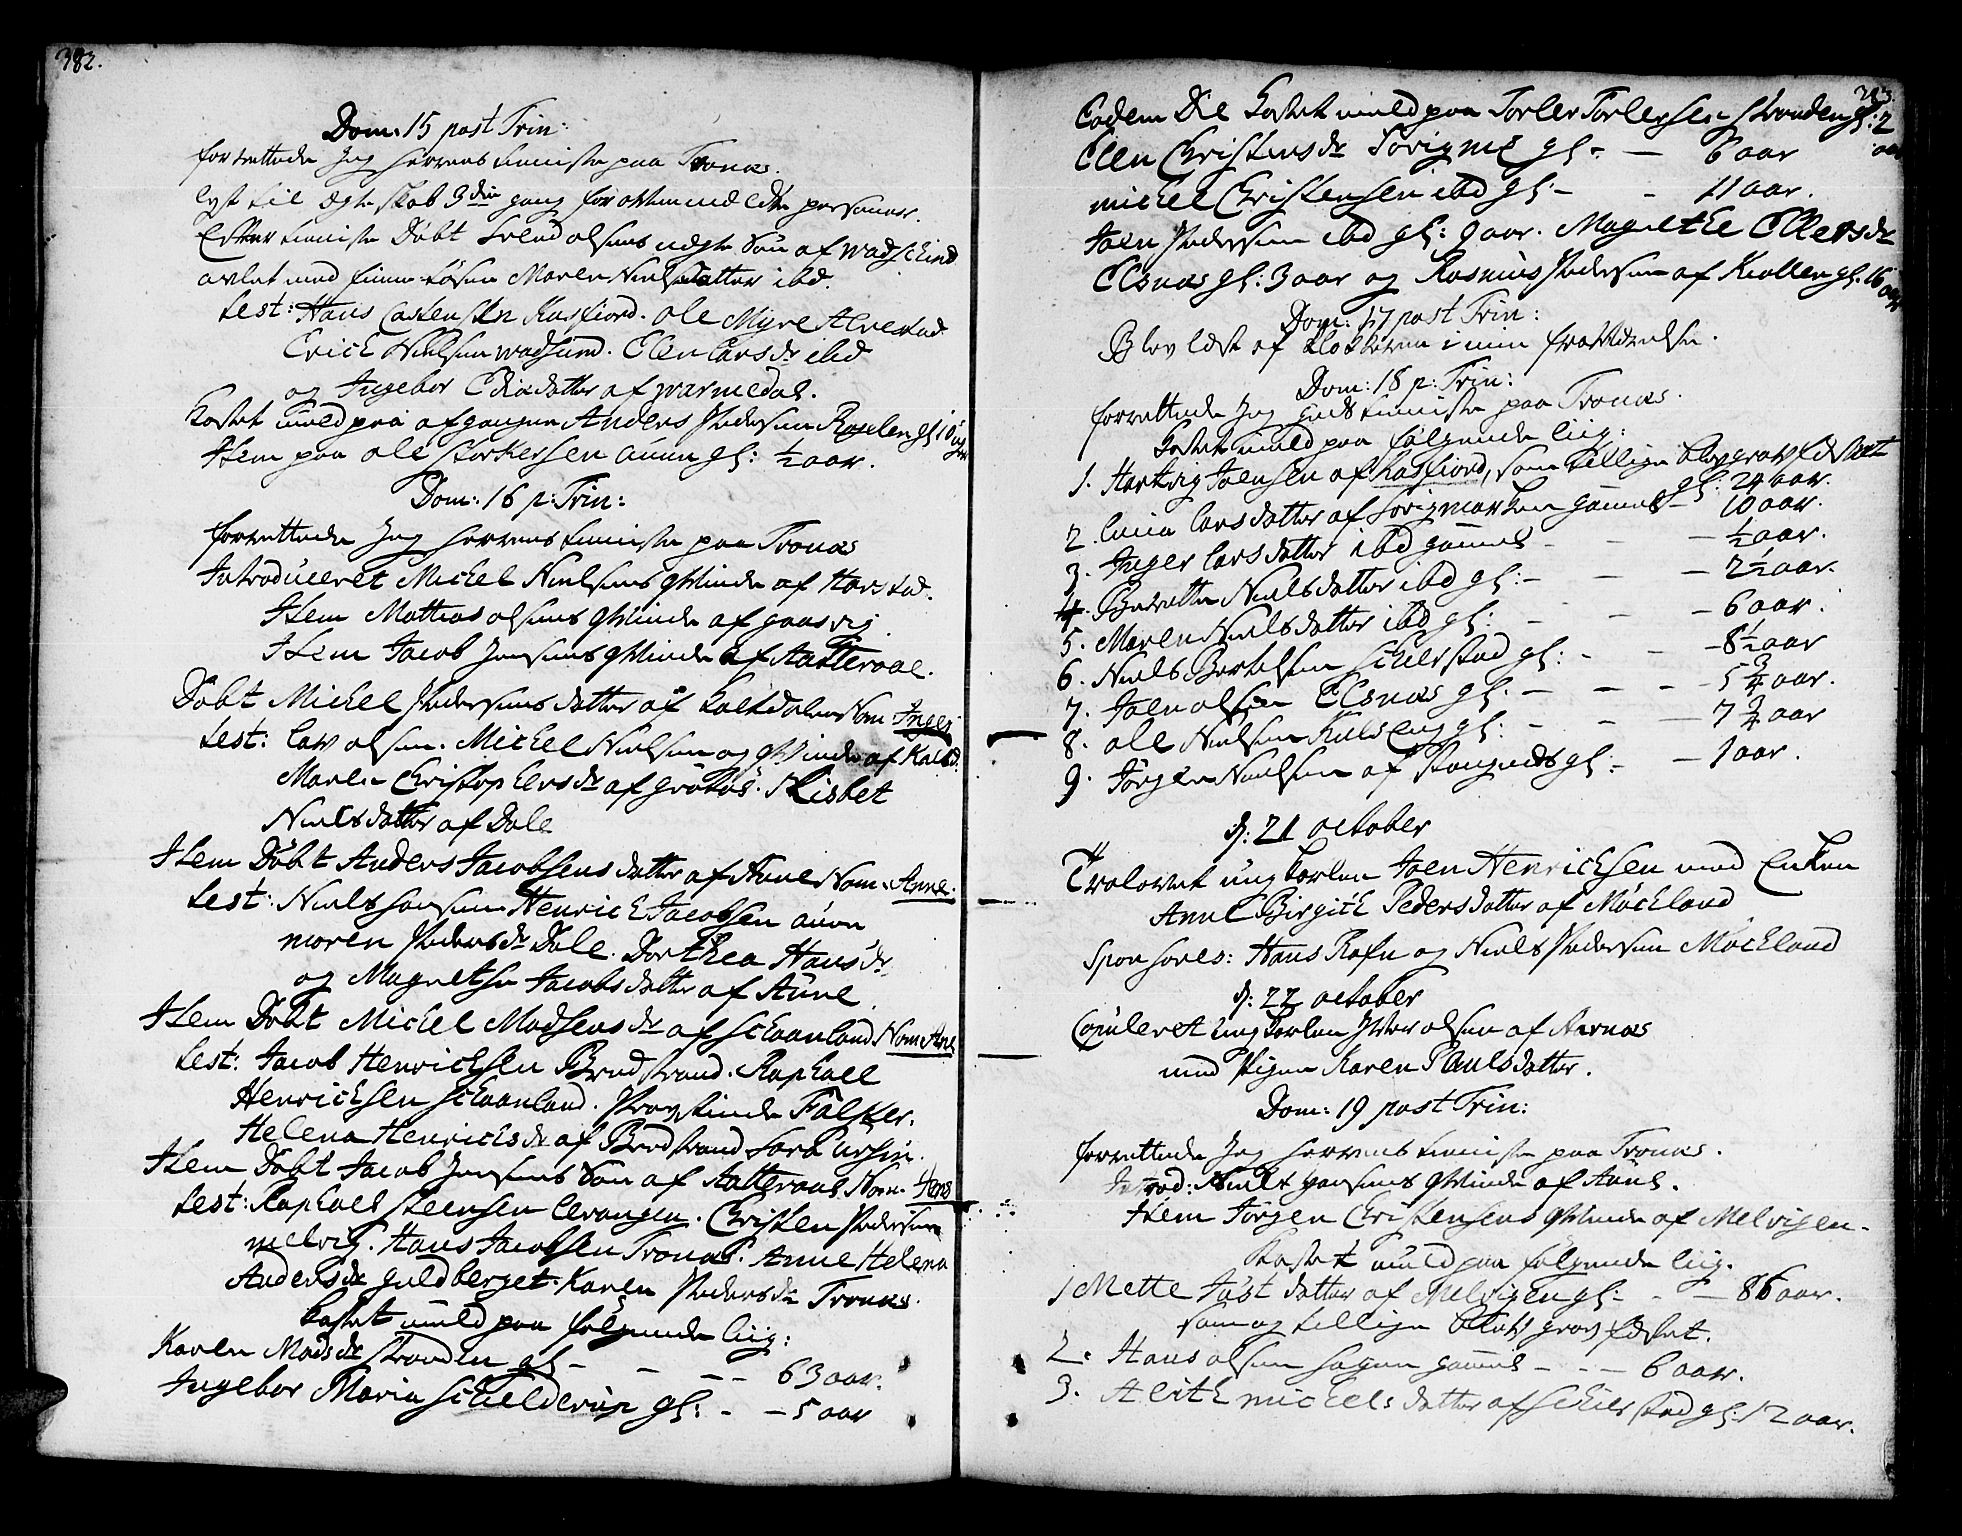 382.
Dom: 15 post Trin:
forrettede Jeg herrens tieniste paa Tronæs.
lyst til Ægteskab 3die gang for ommeldte personer.
Efter tieniste Døbt Svend olsens uægte Søn af wadsund
avlet med Maren Nielsdatter ibd.
test: Hans Kasfiord. ole Myre Alvestad
Erich Nielsen wadsund. Elen Larsdr ibd
og Ingebor datter af warmedal.
kastet muld paa afgangne Anders Pedersen gl: 10 uger
Item paa ole Storkersen auun gl: ½ aar.
Dom: 16 p: Trin:
forrettede Jeg herrens tieniste paa Tronæs
Introduceret Michel Nielsens qvinde af Harstad.
Item Mathias olsens qvinde af gaasvig.
Item Jacob Jensens qvinde af Aatteraae.
Døbt Michel Pedersens datter af Kaltdalen Nom: Inger
test: Lav olsen. Michel Nielsen og qvinde af Kaltd.
Maren Christophersdr af grøtøe. Lisbet
Nielsdatter af Dale
Item Døbt Anders Jacobsens datter af Aune Nom: Anne.
test: Niels Hansen. Henrich Jacobsen auun
maren Pedersdr Dale. Dorthea Hansdr
og Magrethe Jacobsdatter af Aune.
Item Døbt Michel Madsens dr af schaanland Nom: Ane
test: Jacob Henrichsen Bredstrand. Raphael
Henrichsen schaanland. Provstinde Falster.
Helena Henrichsdr af Bredstrand
Item Døbt Jacob Jensens Søn af Aatteraae Nom: Jens
test: Raphael Steensen Levangen. Christen Pedersen
melvig. Hans Jacobsen Tronæs. Anne Helena
Andersdr guldberget. Karen Pedersdr Tronæs.
kastet muld paa følgende liig:
Karen Madsdr stranden gl - - - 63 aar.
Ingebor Maria schielderup gl: - - 5 aar
383.
Eodem Die kastet muld paa Torler Torlersen stranden gl: 2 aar
Elen Christensdr Sørigme gl - - 6 aar
michel Christensen ibd gl: - - 11 aar.
Joen Pedersen ibd gl: 9 aar. Magrethe Ellersdr
Elsnæs gl: 3 aar og Rasmus Pedersen af Kiollen gl. 16 aar
Dom: 17 post Trin:
Blev læst af klokkeren i min fraværelse.
Dom: 18 p: Trin:
forrettede Jeg guds tieniste paa Tronæs.
kastet muld paa følgende liig:
1. Hartvig Joensen af Kasfiord, som tillige blev gravfæstet gl: 24 aar.
2. Lucia Larsdatter af Sørigmarken gammel - 10 aar.
3. Inger Larsdatter ibd gammel - - - ½ aar.
4. Beretha Nielsdatter ibd gl: - - - 2½ aar.
5. Maren Nielsdatter ibd gl: - - - 6 aar.
6. Niels Bertelsen schierstad gl: - - - 8½ aar
7. Joen olsen Elsnæs gl. - - - - 5¾ aar.
8. ole Nielsen Kuleng gl: - - - 7¾ aar
9. Jørgen Nielsen af Stangnes gl: - - 1 aar.
d: 21 october
Trolovet ungkarlen Joen Henrichsen med Enken
Anne Birgith Pedersdatter af Mochland
Sponsores: Hans Rafn og Niels Pedersen Mochland
d: 22 october
Copuleret ungkarlen Peter olsen af Aarnæs
med Pigen Karen Paulsdatter.
Dom: 19 post Trin:
forrettede Jeg herrens tieniste paa Tronæs.
Introd: Niels Hansens qvinde af Aune.
Item Jørgen Christensens qvinde af Melvigen.
kastet muld paa følgende liig.
1 Mette Jost datter af Melvigen gl: - - 86 aar.
som og tillige blev gravfæstet.
2. Hans olsen gammel - - - 6 aar.
3. Alith michels datter af schierstad gl: 12 aar.